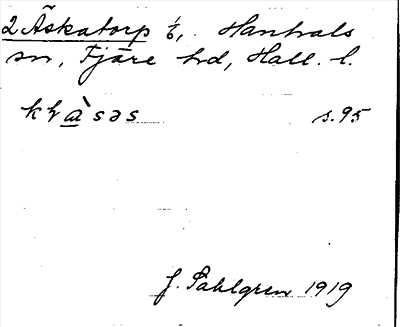 2 Äskatorp 1/6, Hanhals
sn, Fjäre hd, Hall. l.
kɩ̯a̠̍səs s.95
J. Sahlgren 1919